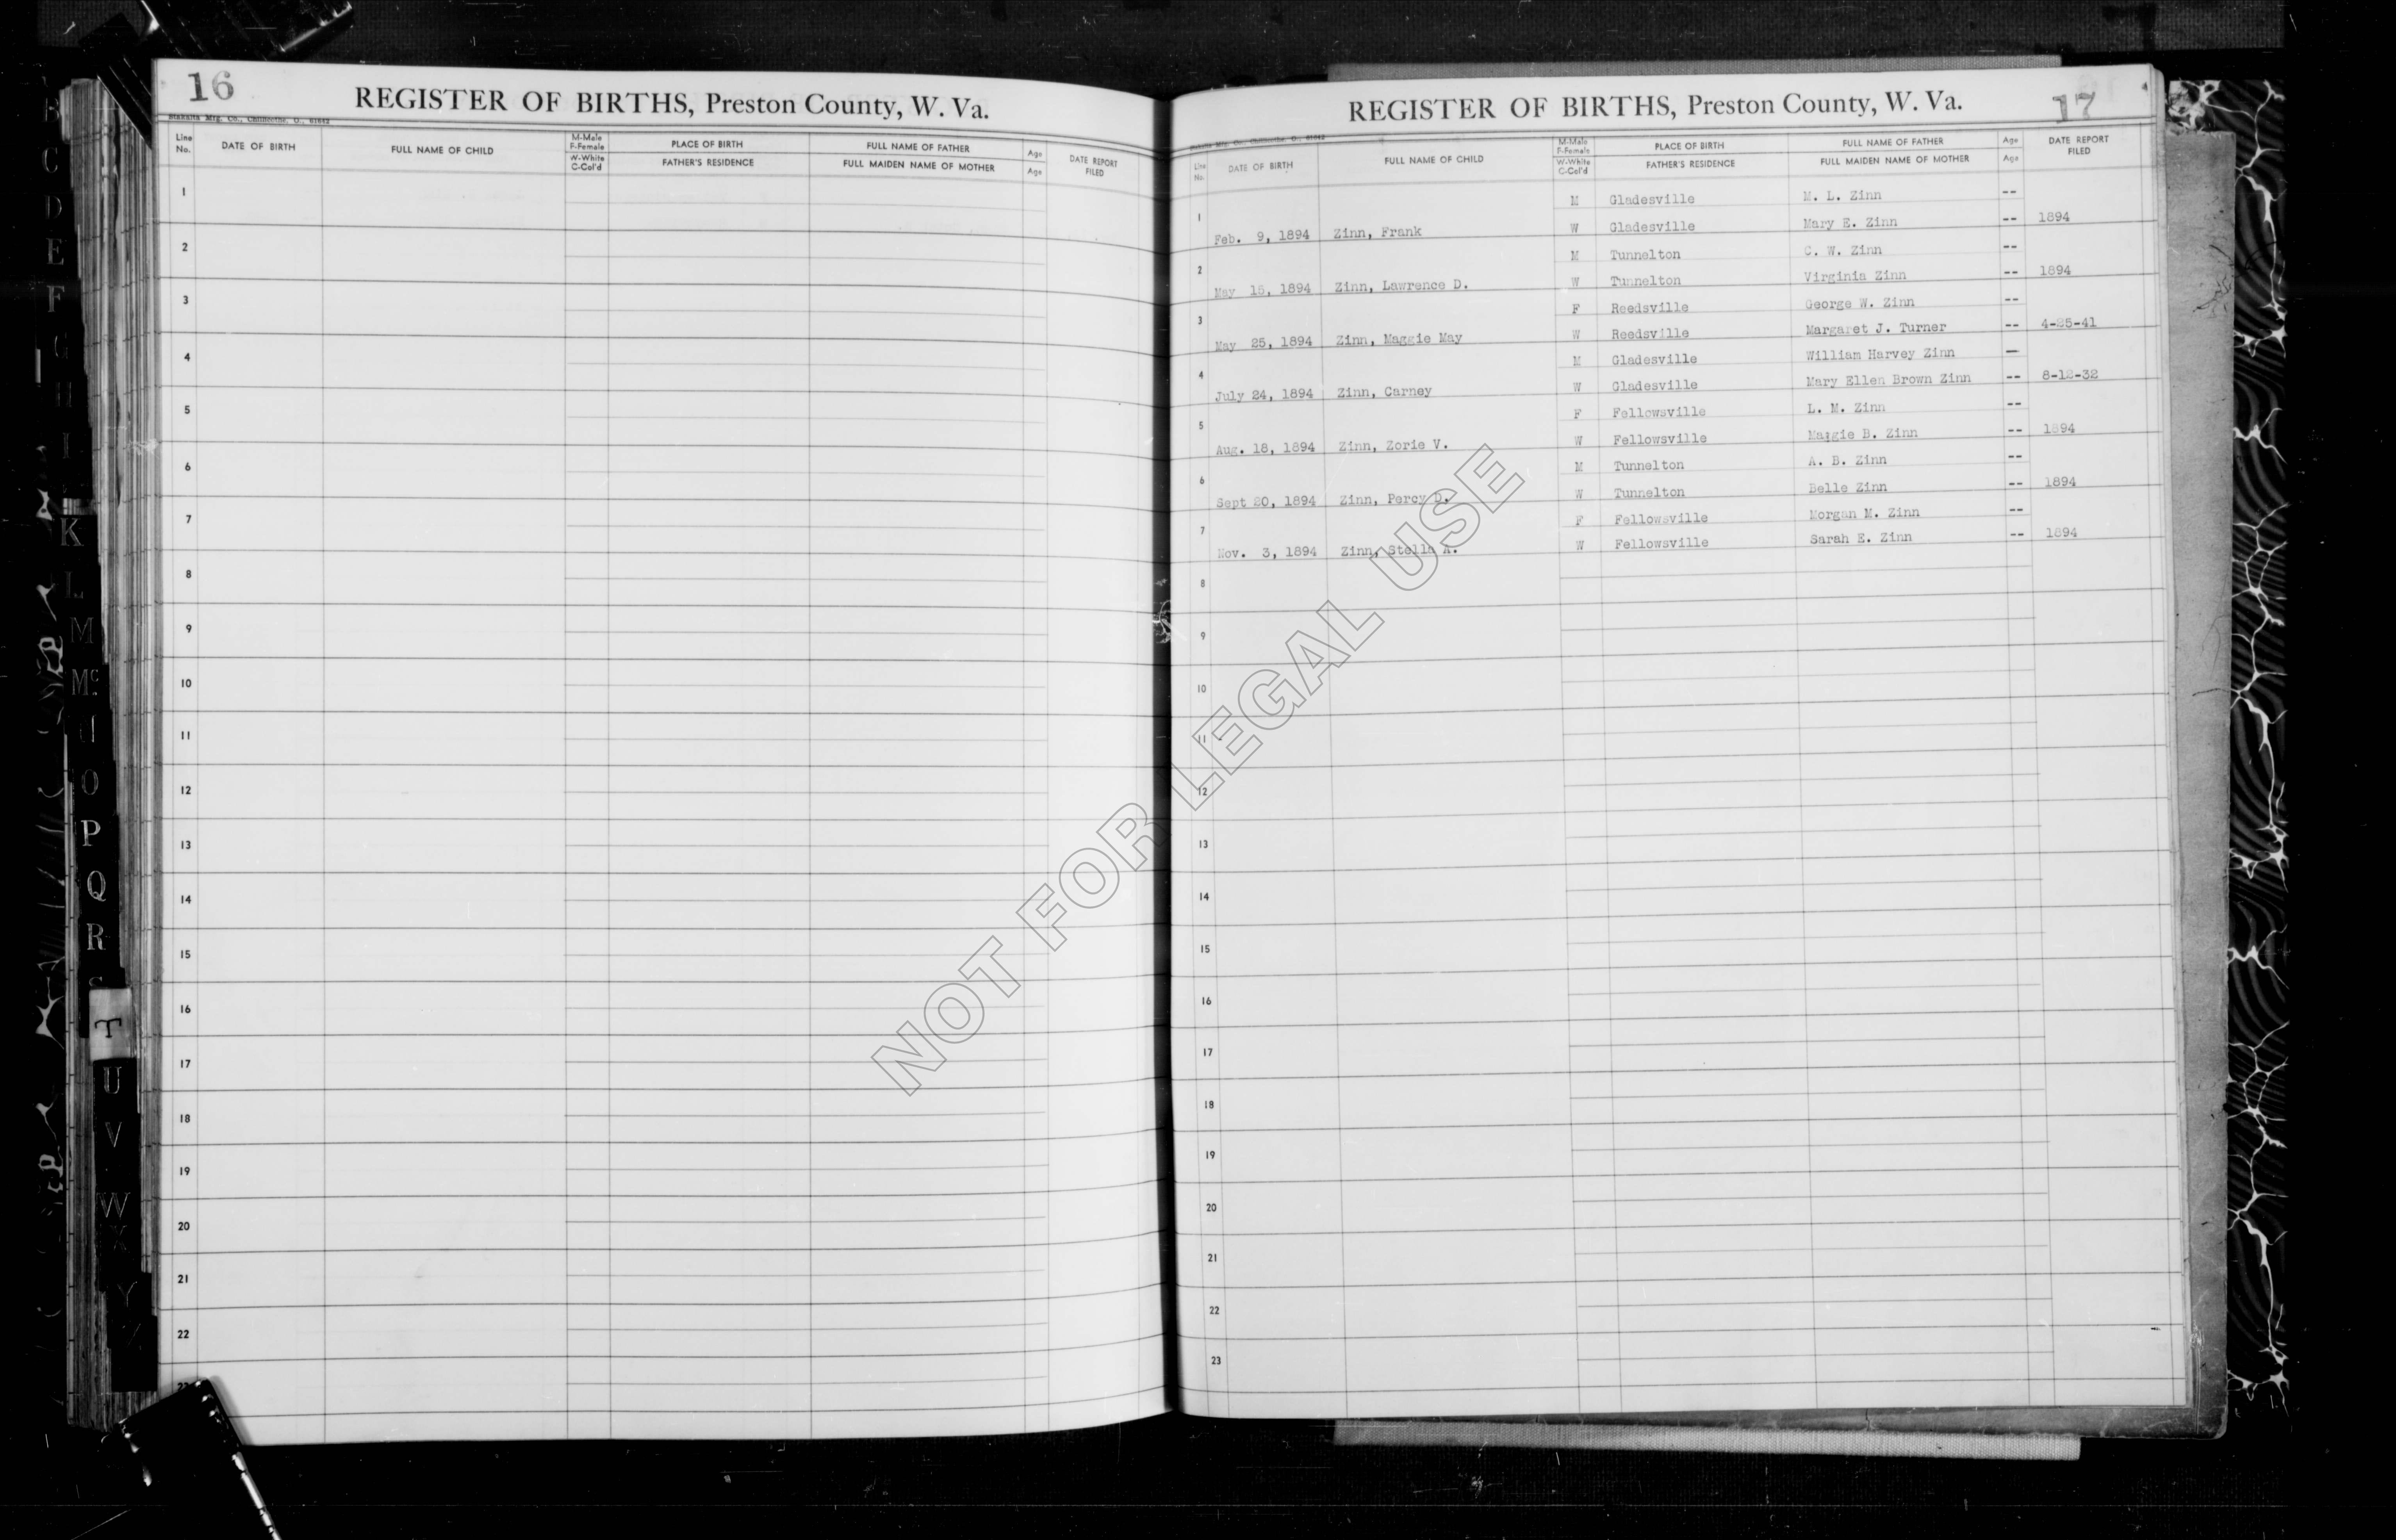 16
REGISTER OF BIRTHS, Preston County, W. Va.
Line No. DATE OF BIRTH FULL NAME OF CHILD M-Male F-Female W-White C-Col'd PLACE OF BIRTH FATHER'S RESIDENCE FULL NAME OF FATHER FULL MAIDEN NAME OF MOTHER Age Age DATE REPORT FILED
1
2
3
4
5
6
7
8
9
10
11
12
13
14
15
16
17
18
19
20
21
22
17
REGISTER OF BIRTHS, Preston County, W. Va.
Line No. DATE OF BIRTH FULL NAME OF CHILD M-Male F-Female W-White C-Col'd PLACE OF BIRTH FATHER'S RESIDENCE FULL NAME OF FATHER FULL MAIDEN NAME OF MOTHER Age Age DATE REPORT FILED
M Gladesville M. L. Zinn --
1 Feb. 9, 1894 Zinn, Frank W Gladesville Mary E. Zinn -- 1894
M Tunnelton C. W. Zinn --
2 May 15, 1894 Zinn, Lawrence D. W Tunnelton Virginia Zinn -- 1894
F Reedsville George W. Zinn --
3 May 25, 1894 Zinn, Maggie May W Reedsville Margaret J. Turner -- 4-25-41
M Gladesville William Harvey Zinn —
4 July 24, 1894 Zinn, Carney W Gladesville Mary Ellen Brown Zinn -- 8-12-32
F Fellowsville L. M. Zinn --
5 Aug. 18, 1894 Zinn, Zorie V. W Fellowsville Maggie B. Zinn -- 1894
M Tunnelton A. B. Zinn --
6 Sept 20, 1894 Zinn, Percy D. W Tunnelton Belle Zinn -- 1894
F Fellowsville Morgan M. Zinn --
7 Nov. 3, 1894 Zinn, Stella A. W Fellowsville Sarah E. Zinn -- 1894
8
9
10
11
12
13
14
15
16
17
18
19
20
21
22
23
NOT FOR LEGAL USE
B
C
D
E
F
G
H
I
K
L
M
Mc
N
O
P
Q
R
T
U
V
W
X
Y
Z